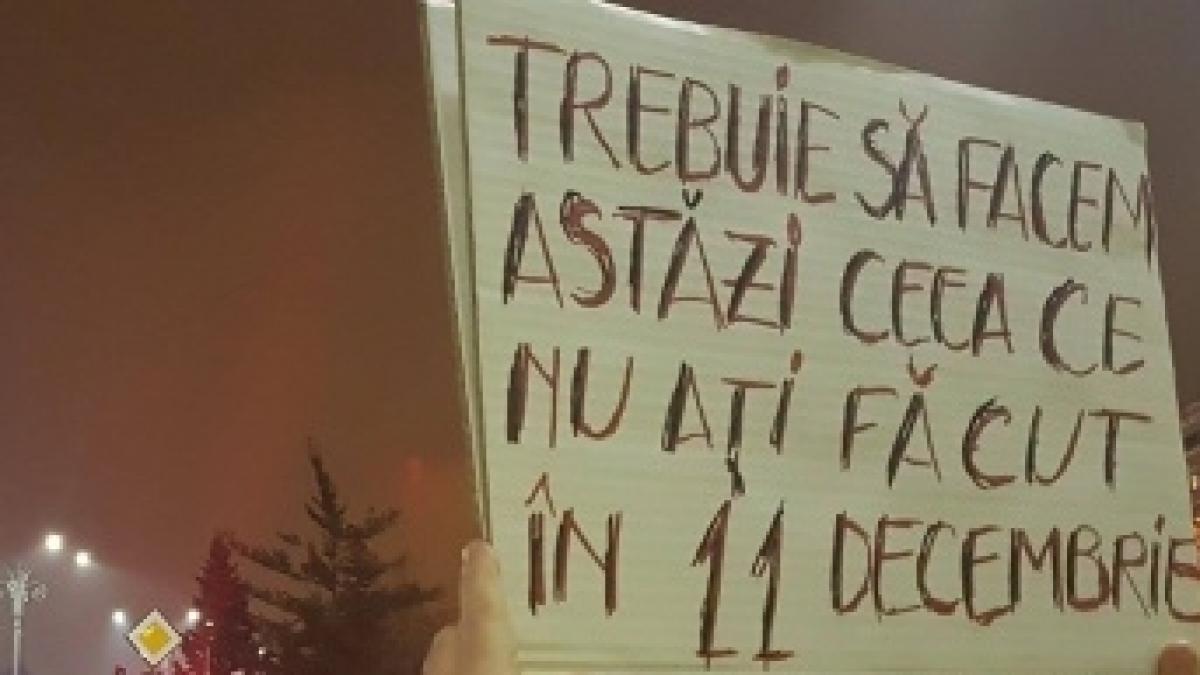 TREBUIE SĂ FACEM
ASTĂZI CEEA CE
NU AȚI FĂCUT
ÎN 11 DECEMBRIE